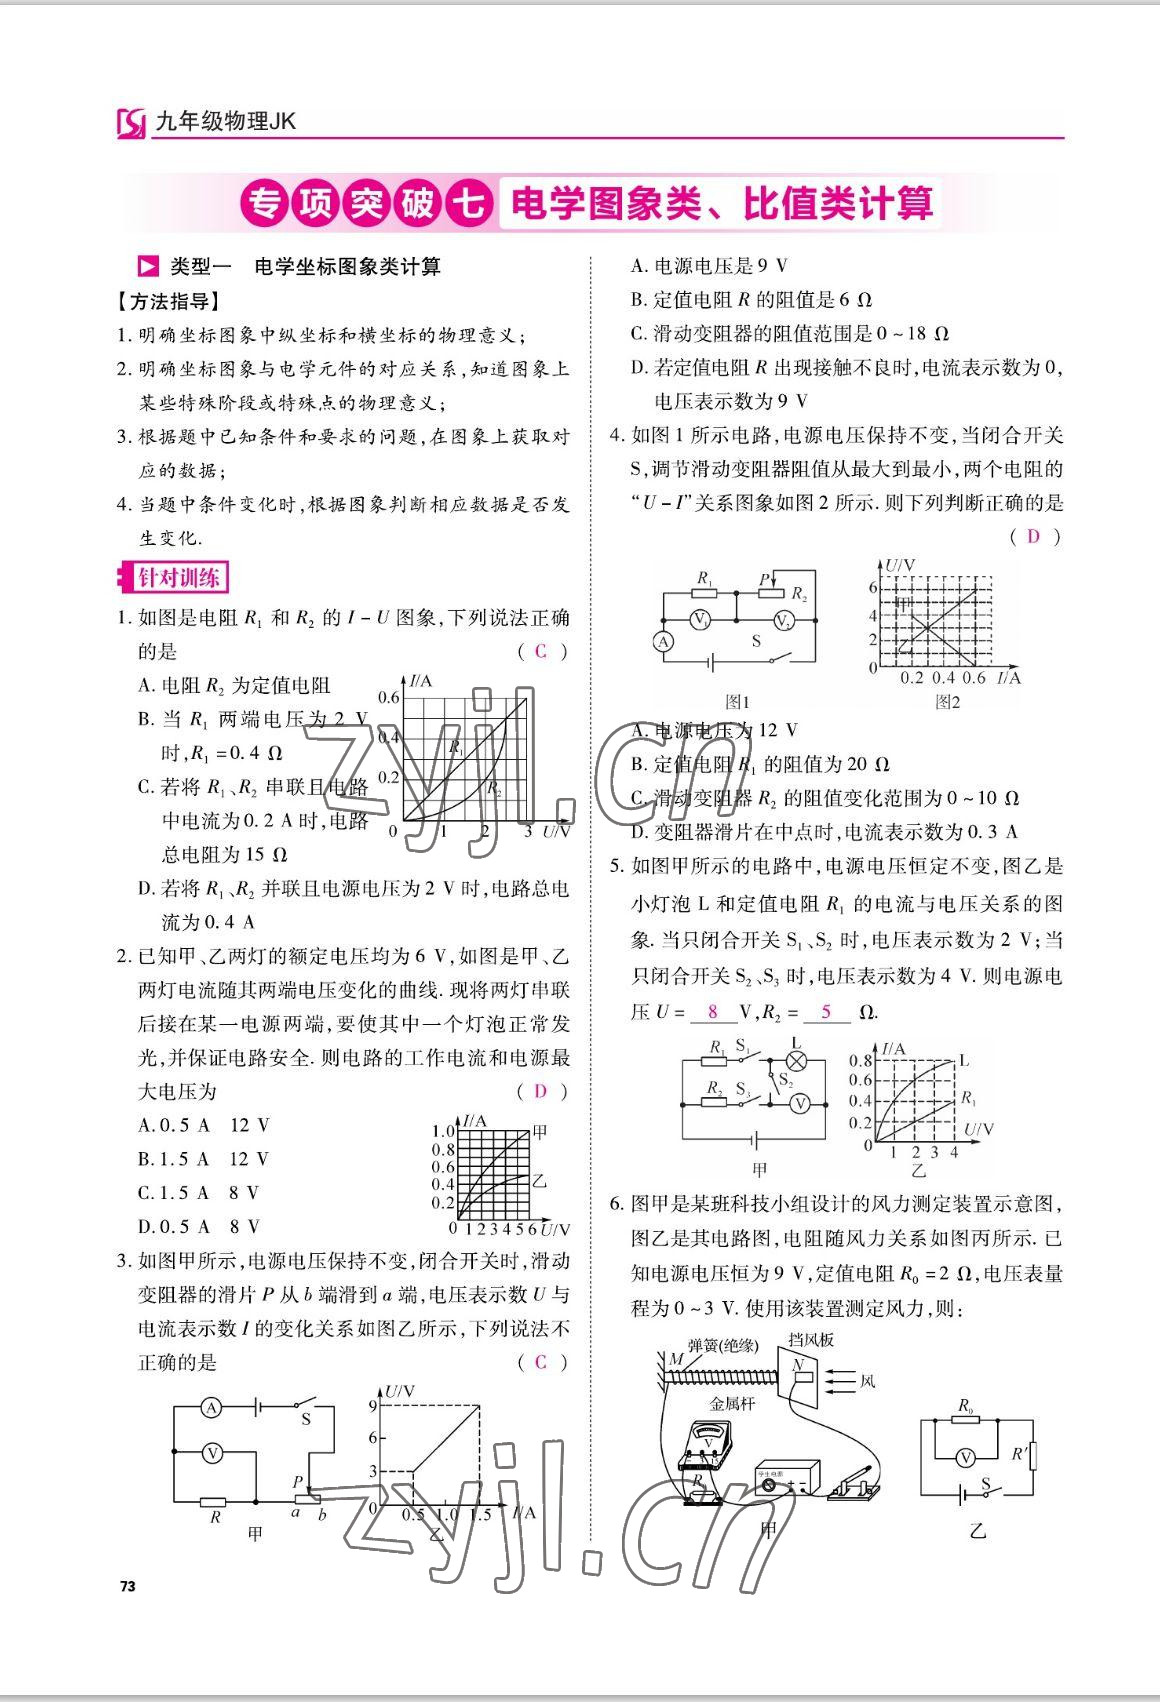 九年级物理JK
专项突破七 电学图象类、比值类计算
类型一 电学坐标图象类计算
【方法指导】
1. 明确坐标图象中纵坐标和横坐标的物理意义;
2. 明确坐标图象与电学元件的对应关系,知道图象上
某些特殊阶段或特殊点的物理意义;
3. 根据题中已知条件和要求的问题,在图象上获取对
应的数据;
4. 当题中条件变化时,根据图象判断相应数据是否发
生变化.
针对训练
1. 如图是电阻 R₁ 和 R₂ 的 I-U 图象,下列说法正确
的是 ( C )
A. 电阻 R₂ 为定值电阻
B. 当 R₁ 两端电压为 2 V
时,R₁ =0.4 Ω
C. 若将 R₁、R₂ 串联且电路
中电流为0.2 A时,电路
总电阻为15 Ω
I/A
0.6
0.4
0.2
R₁
R₂
0 1 2 3 U/V
D. 若将 R₁、R₂ 并联且电源电压为2 V时,电路总电
流为0.4 A
2. 已知甲、乙两灯的额定电压均为6 V,如图是甲、乙
两灯电流随其两端电压变化的曲线. 现将两灯串联
后接在某一电源两端,要使其中一个灯泡正常发
光,并保证电路安全. 则电路的工作电流和电源最
大电压为 ( D )
A.0.5 A 12 V
B.1.5 A 12 V
C.1.5 A 8 V
D.0.5 A 8 V
I/A
1.0
0.8
0.6
0.4
0.2
甲
乙
0 1 2 3 4 5 6 U/V
3. 如图甲所示,电源电压保持不变,闭合开关时,滑动
变阻器的滑片 P 从 b 端滑到 a 端,电压表示数 U 与
电流表示数 I 的变化关系如图乙所示,下列说法不
正确的是 ( C )
A
S
V
P
R
a b
甲
U/V
9
6
3
0 0.5 1.0 1.5 I/A
乙
73
A. 电源电压是9 V
B. 定值电阻 R 的阻值是6 Ω
C. 滑动变阻器的阻值范围是0~18 Ω
D. 若定值电阻 R 出现接触不良时,电流表示数为0,
电压表示数为9 V
4. 如图1所示电路,电源电压保持不变,当闭合开关
S,调节滑动变阻器阻值从最大到最小,两个电阻的
“U-I”关系图象如图2所示. 则下列判断正确的是
( D )
R₁
P
R₂
V₁
V₂
A
S
图1
U/V
6
4
2
甲
乙
0 0.2 0.4 0.6 I/A
图2
A. 电源电压为12 V
B. 定值电阻 R₁ 的阻值为20 Ω
C. 滑动变阻器 R₂ 的阻值变化范围为0~10 Ω
D. 变阻器滑片在中点时,电流表示数为0.3 A
5. 如图甲所示的电路中,电源电压恒定不变,图乙是
小灯泡 L 和定值电阻 R₁ 的电流与电压关系的图
象. 当只闭合开关 S₁、S₂ 时,电压表示数为2 V;当
只闭合开关 S₂、S₃ 时,电压表示数为4 V. 则电源电
压 U = 8 V,R₂ = 5 Ω.
R₁ S₁ L
S₂
R₂ S₃
V
甲
I/A
0.8
0.6
0.4
0.2
L
R₁
0 1 2 3 4 U/V
乙
6. 图甲是某班科技小组设计的风力测定装置示意图,
图乙是其电路图,电阻随风力关系如图丙所示. 已
知电源电压恒为9 V,定值电阻 R₀ =2 Ω,电压表量
程为0~3 V. 使用该装置测定风力,则:
弹簧(绝缘)
挡风板
M
N
风
金属杆
V
学生电源
甲
R₀
V
R′
S
乙
zyjl.cn
zyjl.cn